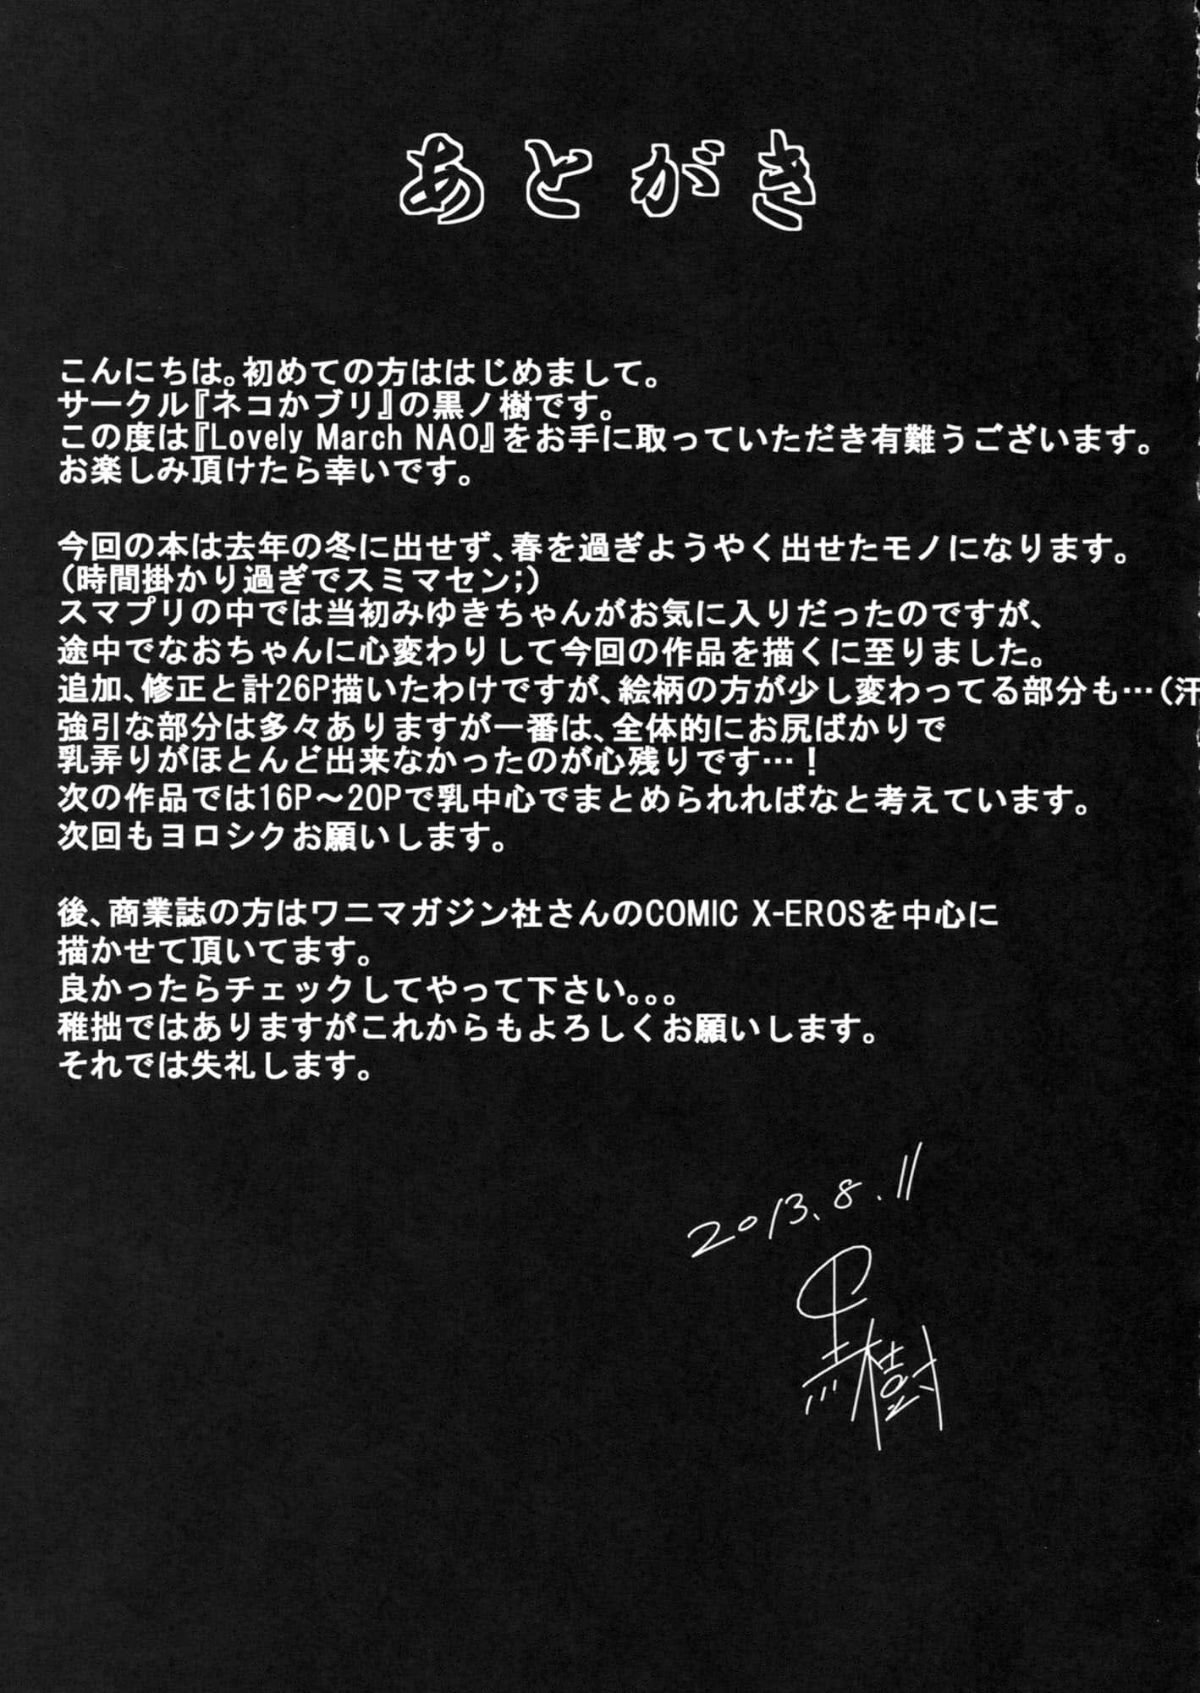 あとがき
こんにちは。初めての方ははじめまして。
サークル『ネコかブリ』の黒ノ樹です。
この度は『Lovely March NAO』をお手に取っていただき有難うございます。
お楽しみ頂けたら幸いです。
今回の本は去年の冬に出せず、春を過ぎようやく出せたモノになります。
（時間掛かり過ぎでスミマセン;）
スマプリの中では当初みゆきちゃんがお気に入りだったのですが、
途中でなおちゃんに心変わりして今回の作品を描くに至りました。
追加、修正と計26P描いたわけですが、絵柄の方が少し変わってる部分も…（汗
強引な部分は多々ありますが一番は、全体的にお尻ばかりで
乳弄りがほとんど出来なかったのが心残りです…！
次の作品では16P～20Pで乳中心でまとめられればなと考えています。
次回もヨロシクお願いします。
後、商業誌の方はワニマガジン社さんのCOMIC X-EROSを中心に
描かせて頂いてます。
良かったらチェックしてやって下さい。。。
稚拙ではありますがこれからもよろしくお願いします。
それでは失礼します。
2013.8.11
黒樹